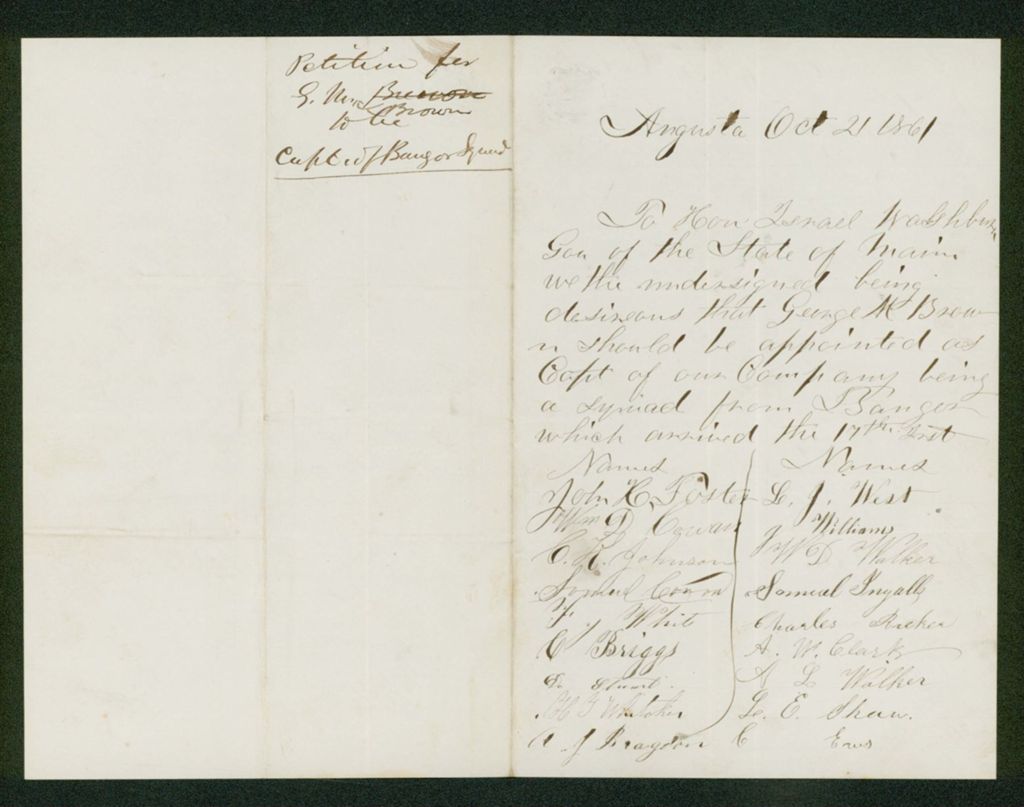 Petition for
G. M. Brown
to be
Capt. of Bangor Squad
Augusta Oct 21 1861
To Hon Isreal Washburn
Gov of the State of Main
we the undersigned being
desireous that George M Brow
n should be appointed as
Capt of our Company being
a squad from Bangor
which arrived the 17th Inst
Names Names
John C. Foster L. J. West
Wm D Cowan J Williams
C. R. Johnson W D Walker
Samuel Samual Ingalls
F J Whit Charles Ricker
C Briggs A. W. Clark
Stuart A L Walker
H T Whitaker L. E. Shaw.
A J Bragdon C